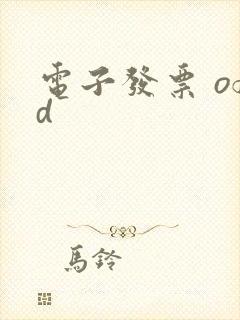 電子發票 od
d
馬鈴